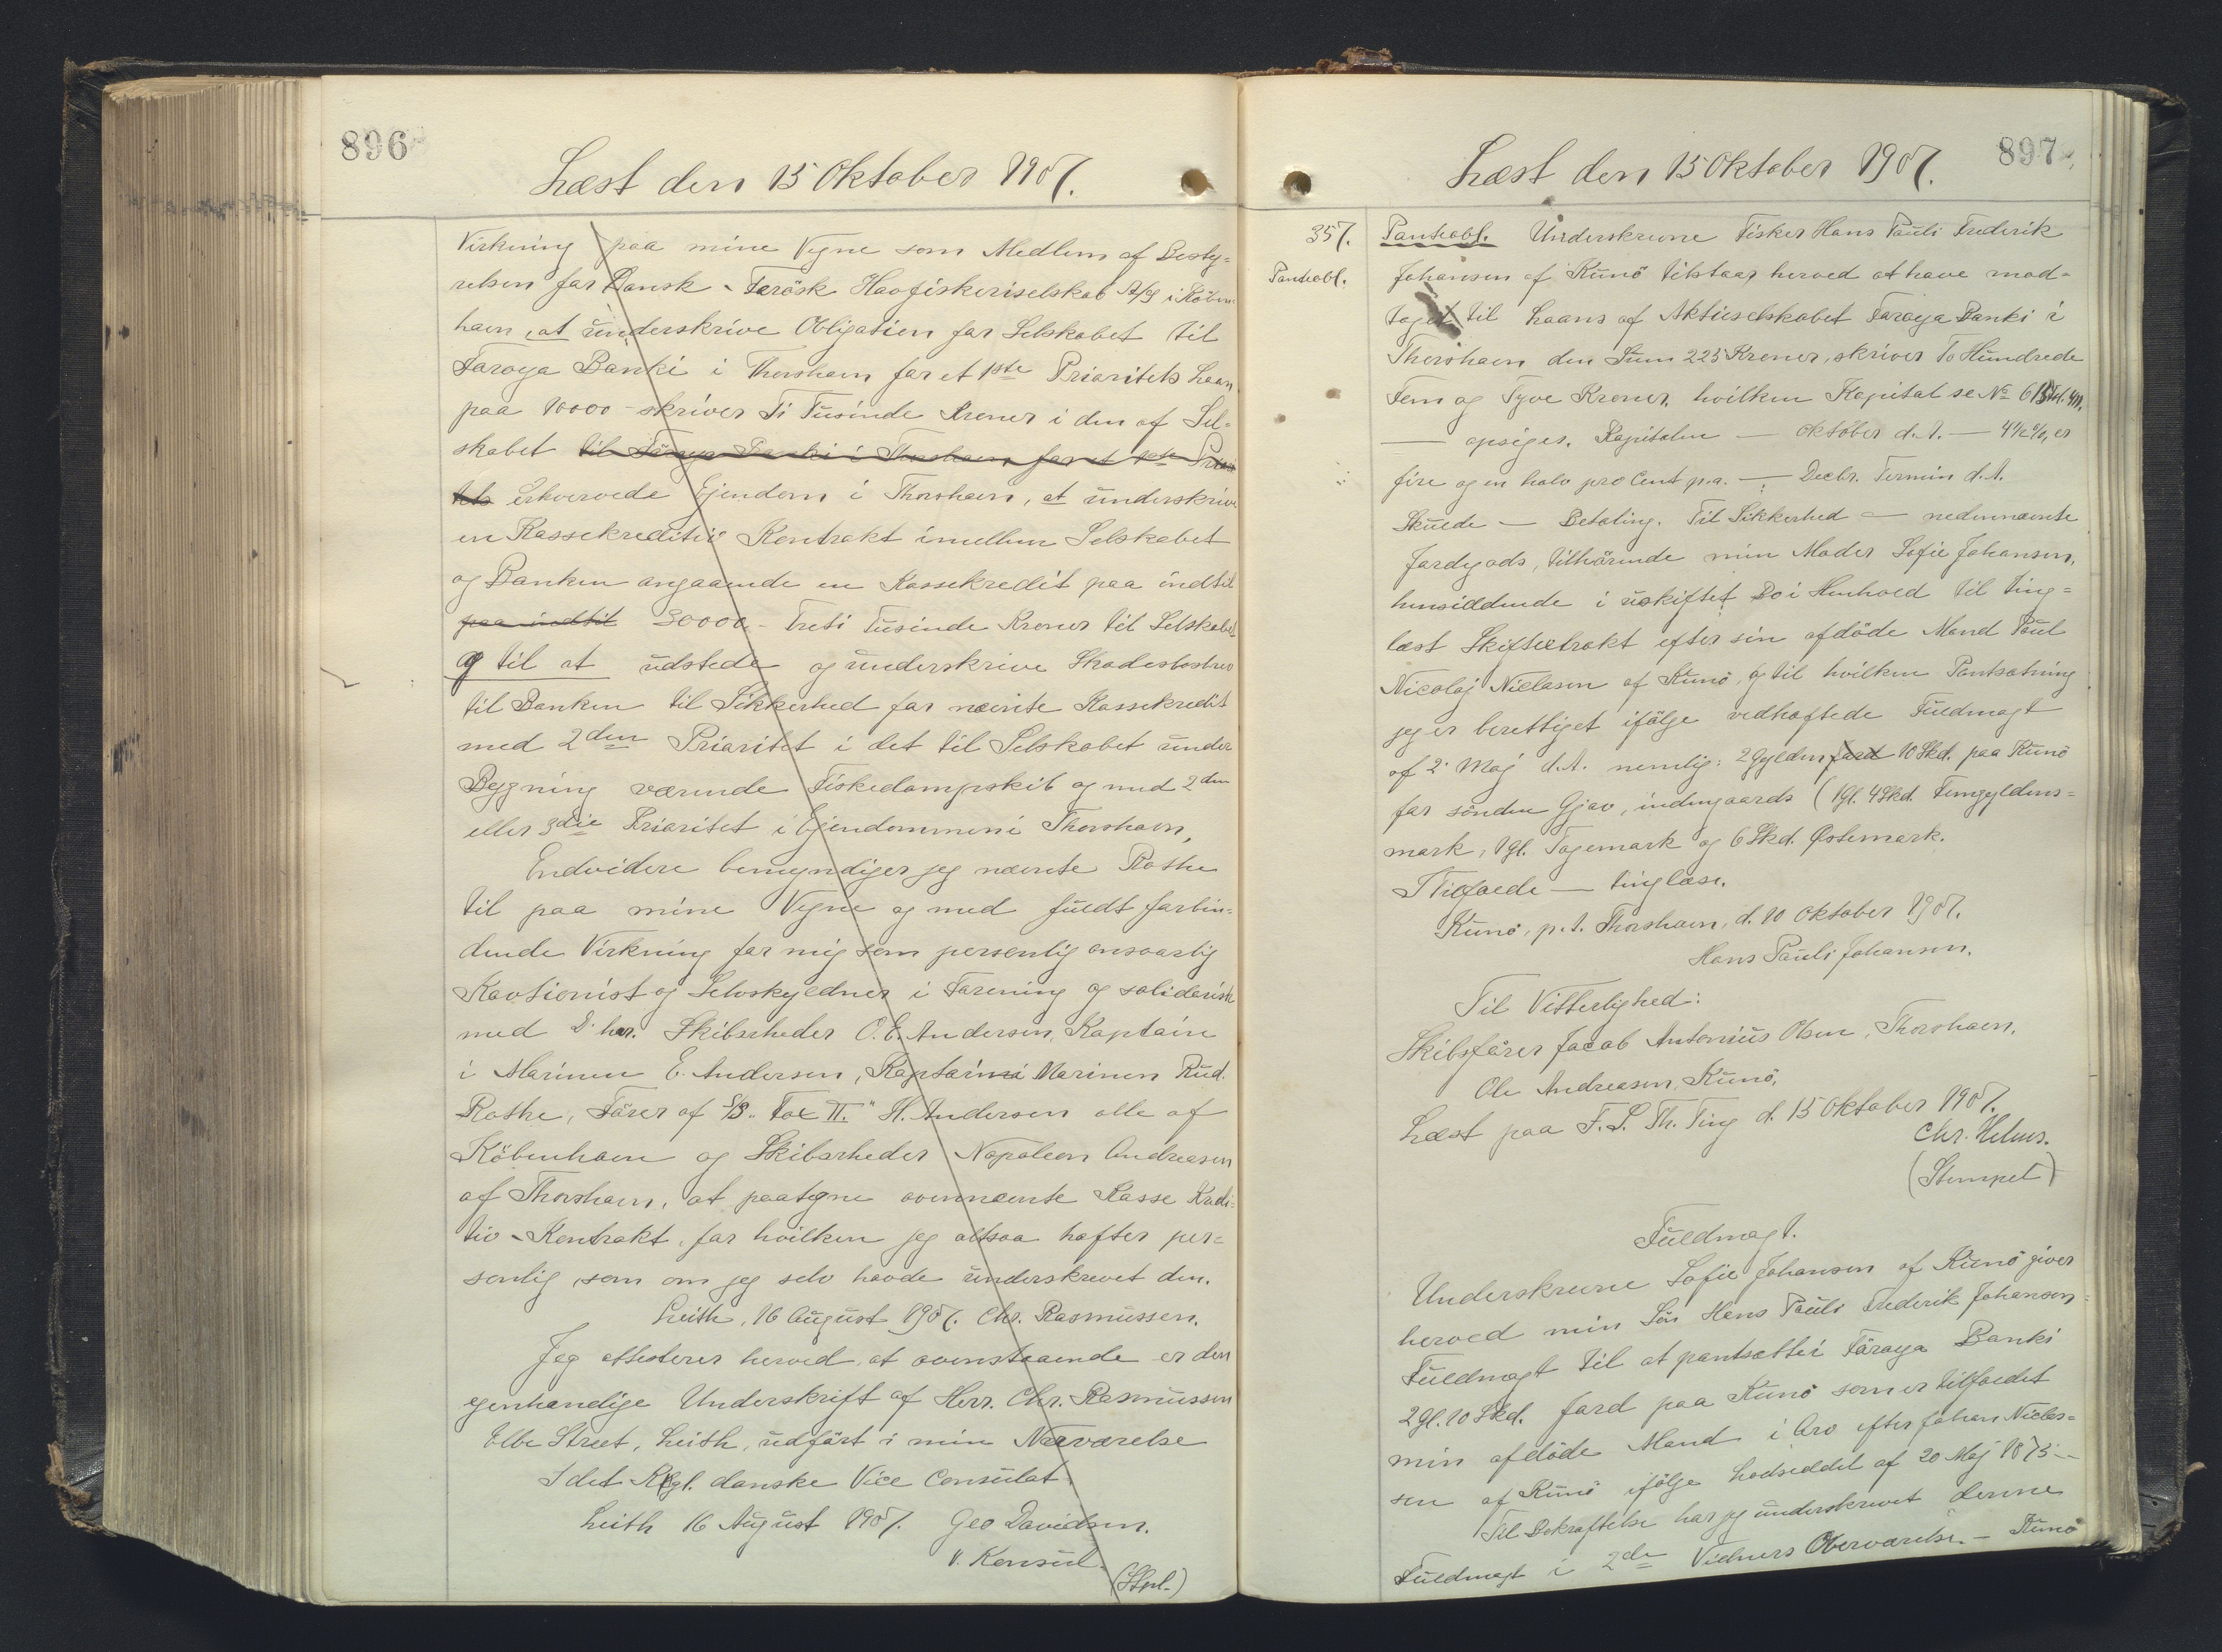 896
Læst den 15 Oktober 1907.
Virkning paa mine Vegne som Medlem af Besty=
relsen for Dansk-Færösk Havfiskeriselskab A/S i Köben=
havn, at underskrive Obligation for Selskabet til
Føroya Banki i Thorshavn for et 1ste Prioritets Laan
paa 10000 - skriver Ti Tusinde Kroner i den af Sel=
skabet til Föroya Banki i Thorshavn for et 1ste Priori
tets erhvervede Ejendom i Thorshavn, at underskrive
en Kassekreditiv Kontrakt imellem Selskabet
og Banken angaaende en Kassekredit paa indtil
paa indtil 30000 - Treti Tusinde Kroner til Selskabet
og til at udstede og underskrive Skadesløsbrev
til Banken til Sikkerhed for nævnte Kassekredit
med 2den Prioritet i det til Selskabet under
Bygning værende Fiskedampskib og med 2den
eller 3die Prioritet i Ejendommen i Thorshavn,
Endvidere bemyndiger jeg nævnte Rothe
til paa mine Vegne og med fuldt forbin=
dende Virkning for mig som personlig ansvarlig
Kavtionist og Selvskyldner i Forening og solidarisk
med D'her. Skibsrheder O. E. Andersen, Kaptain
i Marinen E. Andersen, Kaptain i Marinen Rud.
Rothe, Förer af S/S. "Fox II." H. Andersen alle af
Köbenhavn og Skibsrheder Napoleon Andreasen
af Thorshavn, at paategne ovennævnte Kasse Kredi=
tiv-Kontrakt, for hvilken jeg altsaa hæfter per=
sonlig, som om jeg selv havde underskrevet den.
Leith, 16 August 1907. Chr. Rasmussen.
Jeg attesterer herved, at ovenstaaende er den
egenhændige Underskrift af Herr. Chr. Rasmussen
Elbe Street, Leith, udfört i min Nærværelse
I det Kgl. danske Vice Consulat
Leith 16 August 1907. Geo Davidson.
V. Konsul.
(Stpl.)
897
Læst den 15 Oktober 1907.
357.
Panteobl.
Panteobl. Underskrevne Fisker Hans Pauli Frederik
Johansen af Kunö tilstaar herved at have mod=
taget til Laans af Aktieselskabet Føroya Banki i
Thorshavn den Sum 225 Kroner, skriver To Hundrede
Fem og Tyve Kroner, hvilken Kapital se No
— opsiges. Kapitalen — Oktober d. A. — 4½%, er
fire og en halv pro Cent p.a. — Decbr. Termin d. A.
Skulde — Betaling. Til Sikkerhed — nedennævnte
Jordegods, tilhörende min Moder Sofie Johansen,
hensiddende i uskiftet Bo i Henhold til ting=
læst Skifteextrakt efter sin afdöde Mand Poul
Nicolaj Niclasen af Kunö, og til hvilken Pantsætning
jeg er berettiget ifölge vedhæftede Fuldmagt
af 2' Maj d. A. nemlig: 2 Gylden Jord 10 Skd. paa Kunö
for sönden Gjov, indengaards (1 Gl. 4 Skd. Femgyldens=
mark, 1 gl. Togemark og 6 Skd. Østemark.
I Tilfælde — tinglæse.
Kunö, p. t. Thorshavn, d. 10 Oktober 1907.
Hans Pauli Johansen.
Til Vitterlighed:
Skibsförer Jacob Antonius Olsen, Thorshavn.
Ole Andreasen, Kunö.
Læst paa F. S. Th. Ting d. 15 Oktober 1907.
Chr. Helms.
(Stempel)
Fuldmagt.
Underskrevne Sofie Johansen af Kunö giver
herved min Sön Hans Pauli Frederik Johansen
Fuldmagt til at pantsætte i Föroya Banki
2 Gl. 10 Skd. Jord paa Kunö som er tilfaldet
min afdöde Mand i Arv efter Johan Niclas=
sen af Kunö ifölge Lodseddel af 20 Maj 1875 -
Til Bekræftelse har jeg underskrevet denne
Fuldmagt i 2de Vidners Overværelse. - Kunö